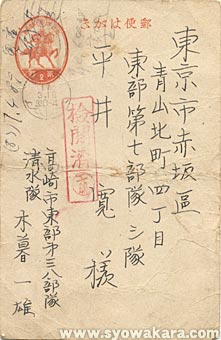 郵便はがき
東京市赤坂區
青山北町四丁目
東部第七部隊シ隊
平井寛様
検閲済
高崎市東部第三八部隊
清水隊
木暮一雄
www.syowakara.com